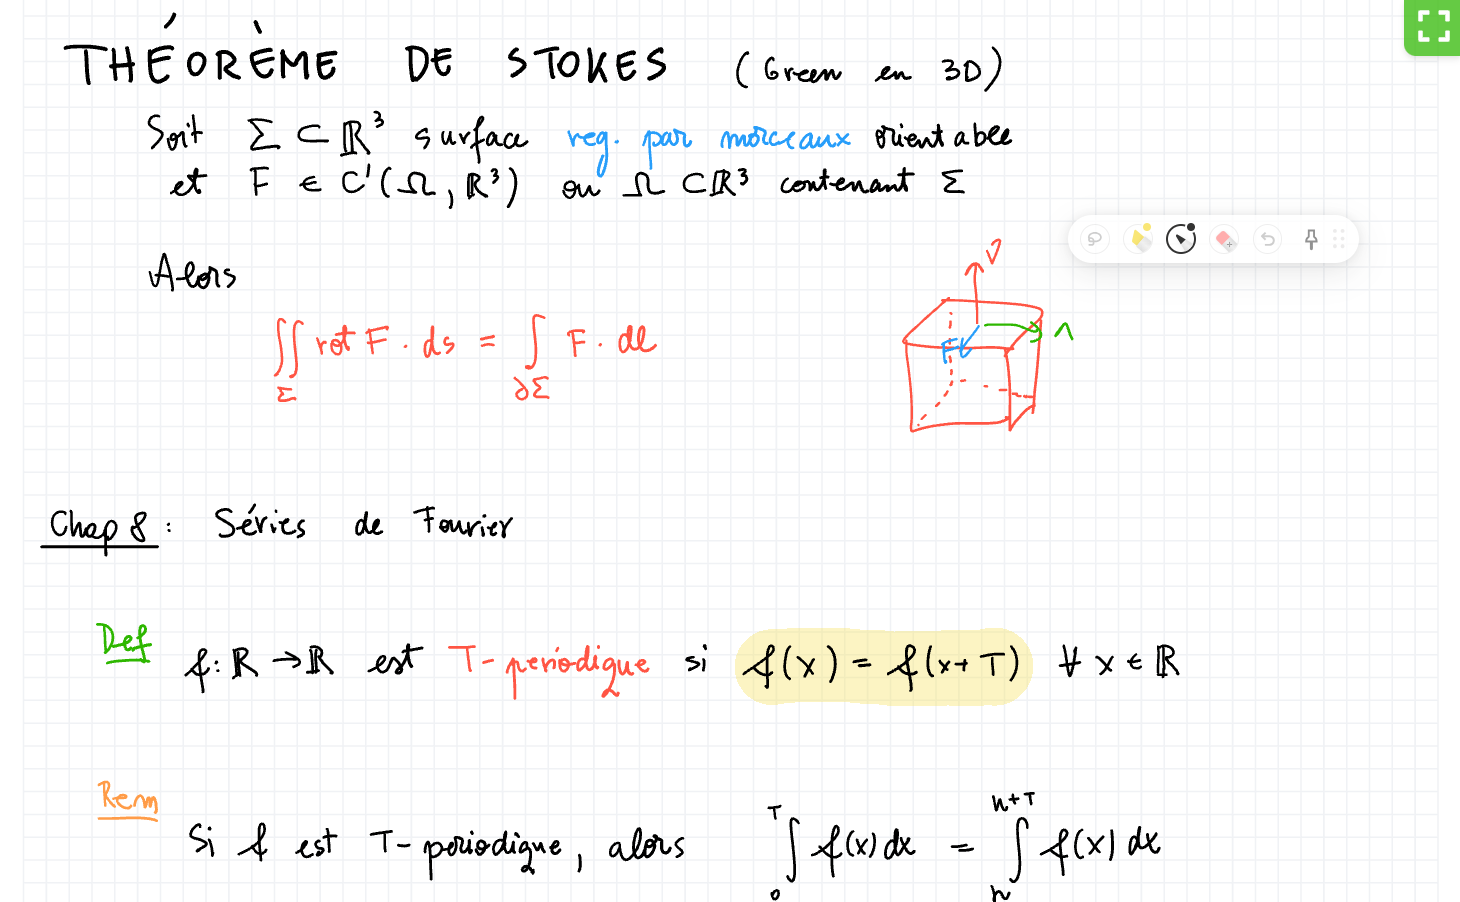 THÉORÈME DE STOKES (Green en 3D)
Soit Σ ⊂ ℝ³ surface reg. par morceaux orientable
et F ∈ C¹(Ω, ℝ³) ou Ω ⊂ ℝ³ contenant Σ
Alors
∬_Σ rot F · ds = ∫_∂Σ F · dl
ν
F
Λ
Chap 8 : Séries de Fourier
Def
f: ℝ → ℝ est T-periodique si f(x) = f(x+T) ∀ x ∈ ℝ
Rem
Si f est T-periodique, alors ∫_0^T f(x) dx = ∫_n^{n+T} f(x) dx